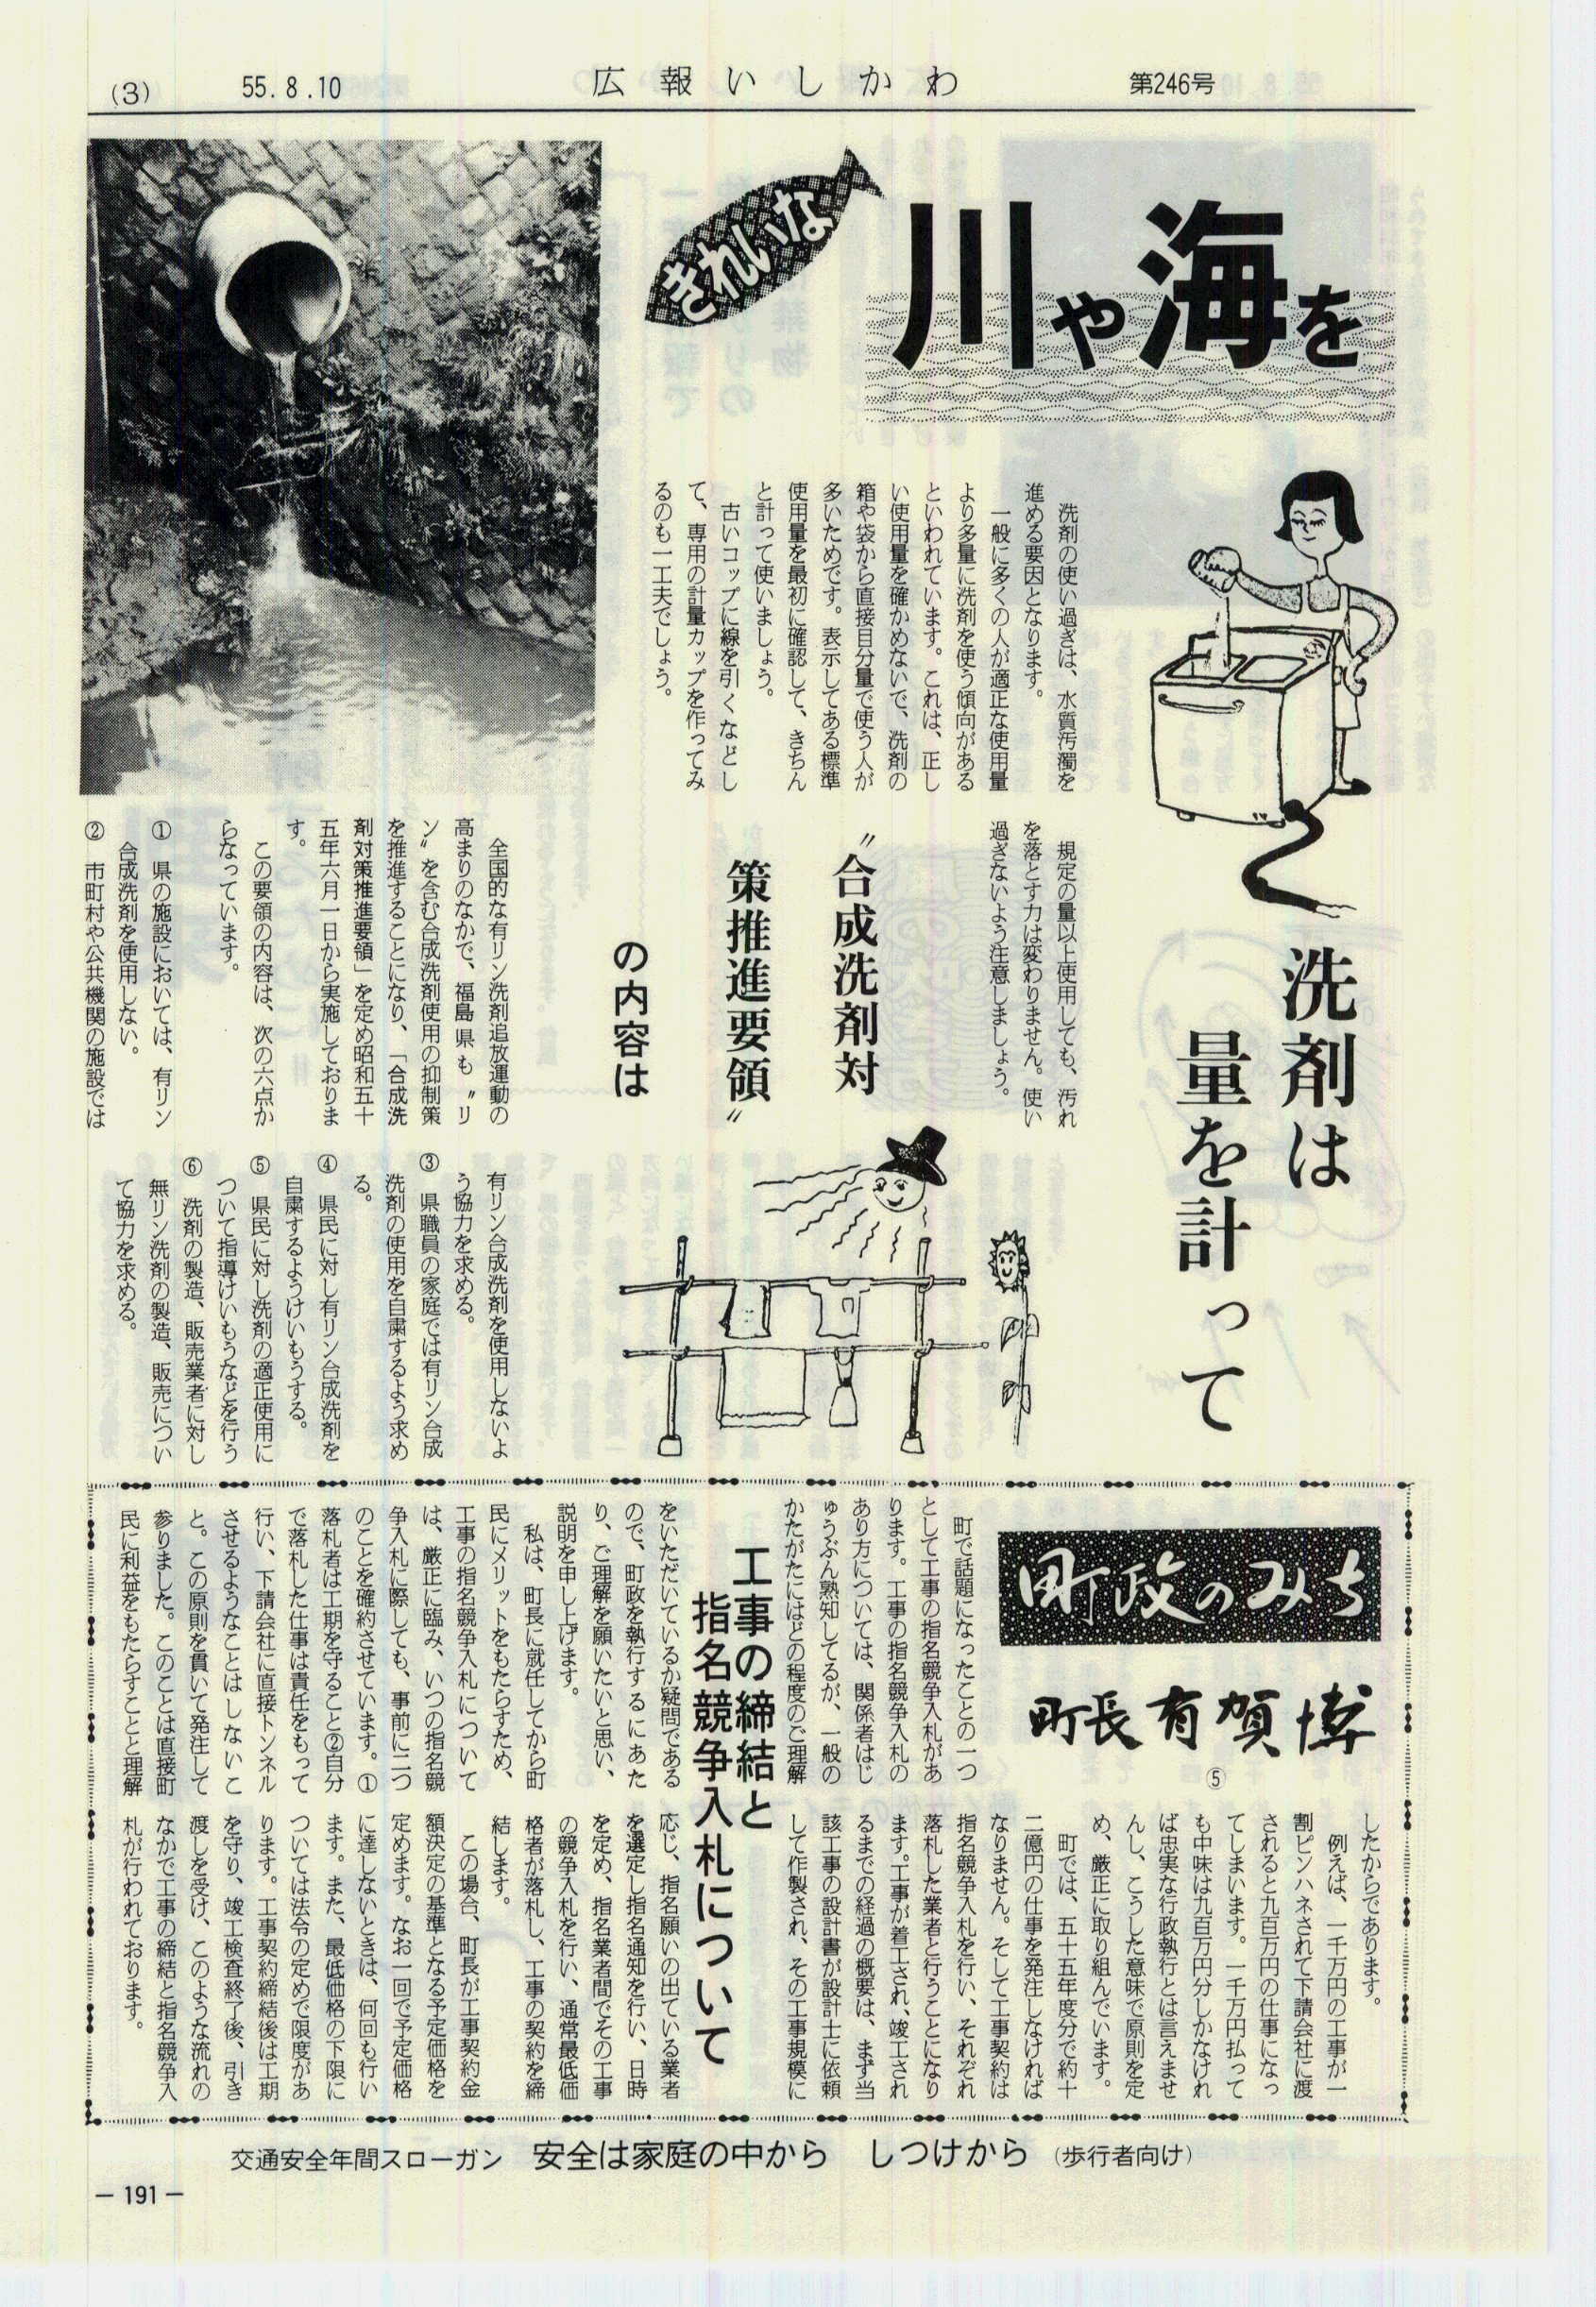 (3)
55.8.10
広報いしかわ
第246号
川や海を
きれいな
洗剤は
量を計って
洗剤の使い過ぎは、水質汚濁を
進める要因となります。
一般に多くの人が適正な使用量
より多量に洗剤を使う傾向がある
といわれています。これは、正し
い使用量を確かめないで、洗剤の
箱や袋から直接目分量で使う人が
多いためです。表示してある標準
使用量を最初に確認して、きちん
と計って使いましょう。
古いコップに線を引くなどし
て、専用の計量カップを作ってみ
るのも一工夫でしょう。
規定の量以上使用しても、汚れ
を落とす力は変わりません。使い
過ぎないよう注意しましょう。
〝合成洗剤対
策推進要領〟
の内容は
全国的な有リン洗剤追放運動の
高まりのなかで、福島県も〝リ
ン〟を含む合成洗剤使用の抑制策
を推進することになり、「合成洗
剤対策推進要領」を定め昭和五十
五年六月一日から実施しておりま
す。
この要領の内容は、次の六点か
らなっています。
① 県の施設においては、有リン
合成洗剤を使用しない。
② 市町村や公共機関の施設では
有リン合成洗剤を使用しないよ
う協力を求める。
③ 県職員の家庭では有リン合成
洗剤の使用を自粛するよう求め
る。
④ 県民に対し有リン合成洗剤を
自粛するようけいもうする。
⑤ 県民に対し洗剤の適正使用に
ついて指導けいもうなどを行う
⑥ 洗剤の製造、販売業者に対し
無リン洗剤の製造、販売につい
て協力を求める。
町政のみち
町長 有賀博
⑤
工事の締結と
指名競争入札について
町で話題になったことの一つ
として工事の指名競争入札があ
ります。工事の指名競争入札の
あり方については、関係者はじ
ゅうぶん熟知してるが、一般の
かたがたにはどの程度のご理解
をいただいているか疑問である
ので、町政を執行するにあた
り、ご理解を願いたいと思い、
説明を申し上げます。
私は、町長に就任してから町
民にメリットをもたらすため、
工事の指名競争入札について
は、厳正に臨み、いつの指名競
争入札に際しても、事前に二つ
のことを確約させています。①
落札者は工期を守ること②自分
で落札した仕事は責任をもって
行い、下請会社に直接トンネル
させるようなことはしないこ
と。この原則を貫いて発注して
参りました。このことは直接町
民に利益をもたらすことと理解
したからであります。
例えば、一千万円の工事が一
割ピンハネされて下請会社に渡
されると九百万円の仕事になっ
てしまいます。一千万円払って
も中味は九百万円分しかなけれ
ば忠実な行政執行とは言えませ
んし、こうした意味で原則を定
め、厳正に取り組んでいます。
町では、五十五年度分で約十
二億円の仕事を発注しなければ
なりません。そして工事契約は
指名競争入札を行い、それぞれ
落札した業者と行うことになり
ます。工事が着工され、竣工され
るまでの経過の概要は、まず当
該工事の設計書が設計士に依頼
して作製され、その工事規模に
応じ、指名願いの出ている業者
を選定し指名通知を行い、日時
を定め、指名業者間でその工事
の競争入札を行い、通常最低価
格者が落札し、工事の契約を締
結します。
この場合、町長が工事契約金
額決定の基準となる予定価格を
定めます。なお一回で予定価格
に達しないときは、何回も行い
ます。また、最低価格の下限に
ついては法令の定めで限度があ
ります。工事契約締結後は工期
を守り、竣工検査終了後、引き
渡しを受け、このような流れの
なかで工事の締結と指名競争入
札が行われております。
交通安全年間スローガン 安全は家庭の中から しつけから (歩行者向け)
— 191 —